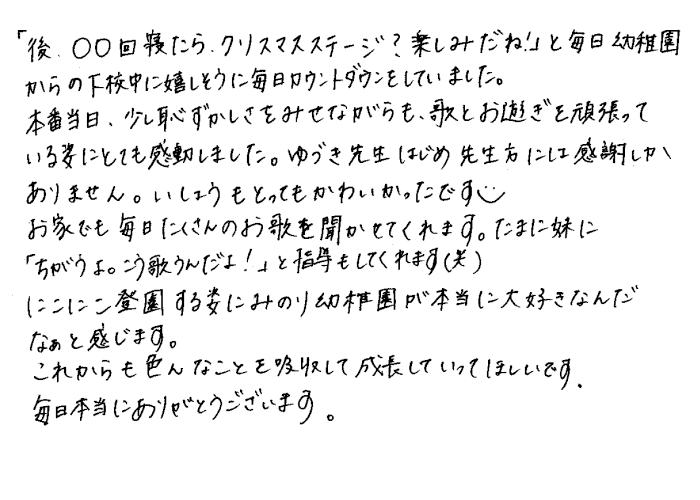 「後、〇〇回寝たら、クリスマスステージ?楽しみだね!」と毎日幼稚園
からの下校中に嬉しそうに毎日カウントダウンをしていました。
本番当日、少し恥ずかしさをみせながらも、歌とお遊ぎを頑張って
いる姿にとても感動しました。ゆづき先生はじめ先生方には感謝しか
ありません。いしょうもとってもかわいかったです
お家でも毎日たくさんのお歌を聞かせてくれます。たまに妹に
「ちがうよ。こう歌うんだよ!」と指導もしてくれます(笑)
にこにこ登園する姿にみのり幼稚園が本当に大好きなんだ
なぁと感じます。
これからも色んなことを吸収して成長していってほしいです.
毎日本当にありがとうございます。